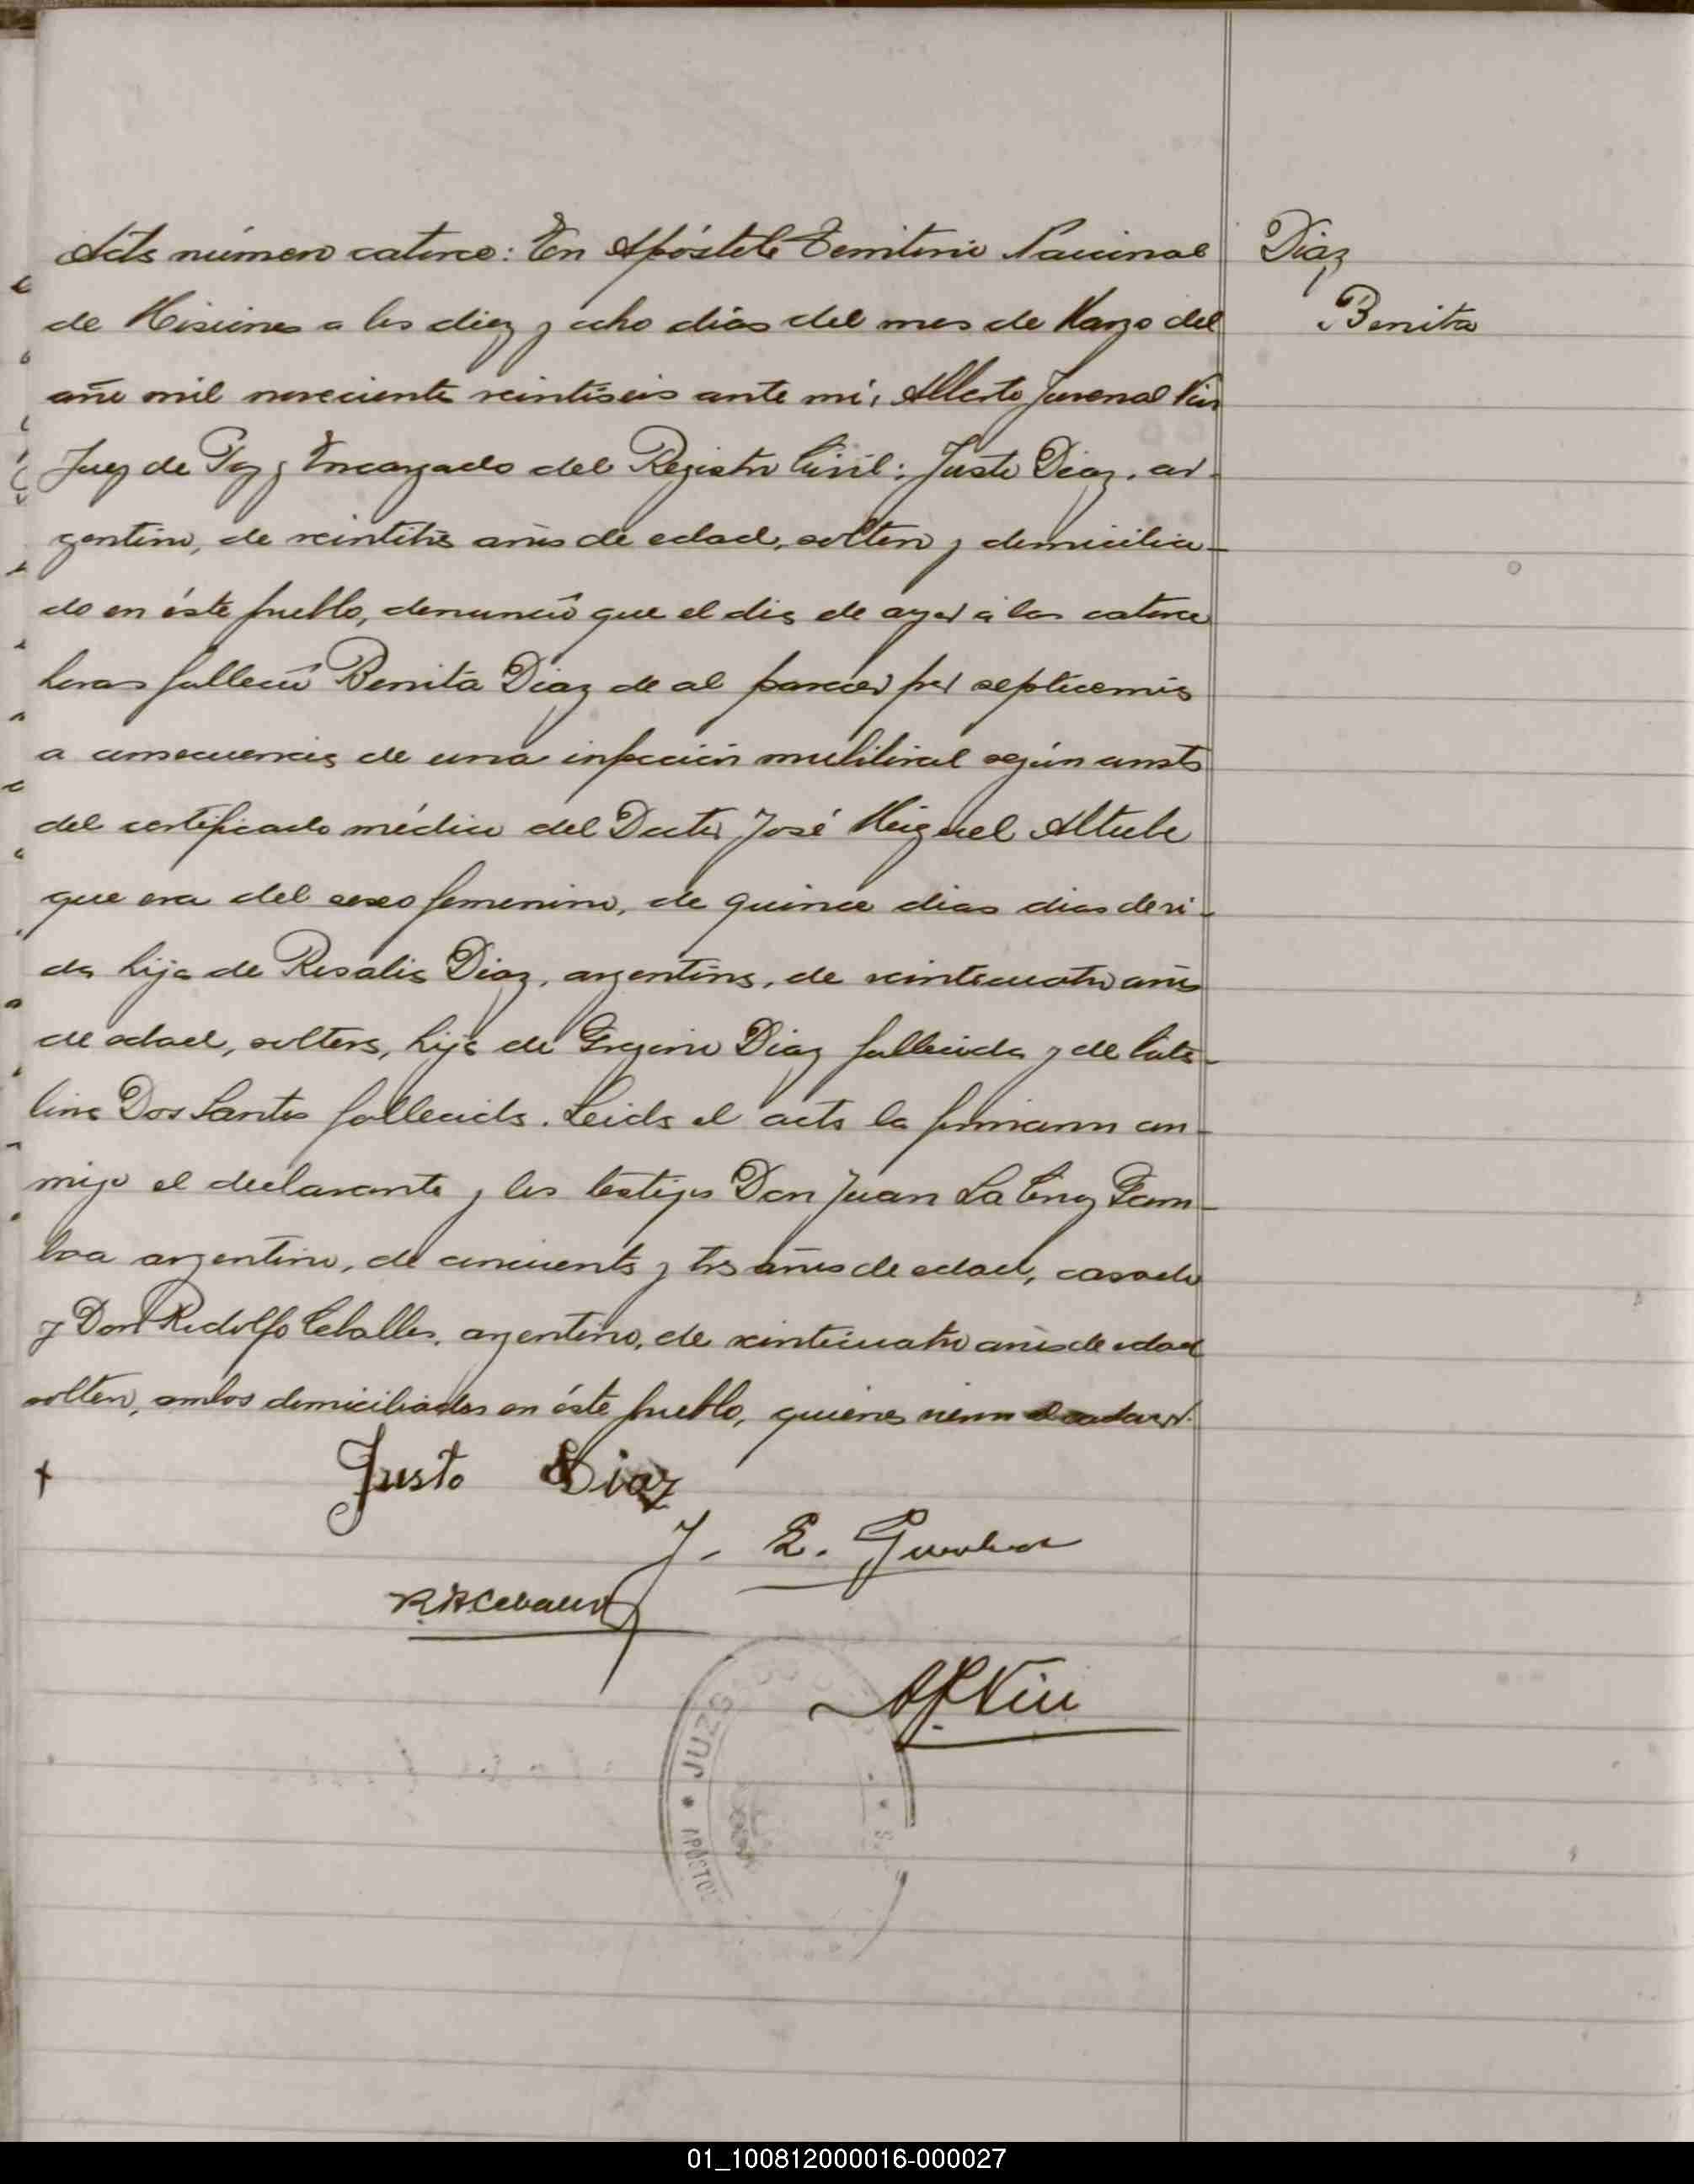 Acta número catorce: En Apóstole Territorio Nacional
de Misiones a los diez y ocho dias del mes de Marzo del
año mil noveciento veintiseis ante mi, Alberto Juvenal
Juez de Paz y Encargado del Registro Civil: Justo Diaz, ar-
gentino, de veintitrés años de edad, soltero y domicilia-
do en éste pueblo, denunció que el dia de ayer á las catorce
horas falleció Benita Diaz de al parecer por septicemia
a consecuencia de una infección según consta
del certificado médico del Doctor José Miguel Altube
que era del sexo femenino, de quince dias dias de vi-
da hija de Rosalia Diaz, argentina, de veinticuatro años
de edad, soltera, hija de Gregorio Diaz fallecido y de Cata-
lina Dos Santos fallecida. Leida el acta la firmaron con-
migo el declarante y los testigos Don Juan La Cruz
argentino, de cincuenta y tres años de edad, casado
y Don Rodolfo Ceballos, argentino, de veinticuatro años de edad
soltero, ambos domiciliados en éste pueblo, quienes vieron el cadaver.
Justo Diaz
J. E.
R. A. Ceballos
JUZG
APOSTOL
Diaz
Benita
01_100812000016-000027